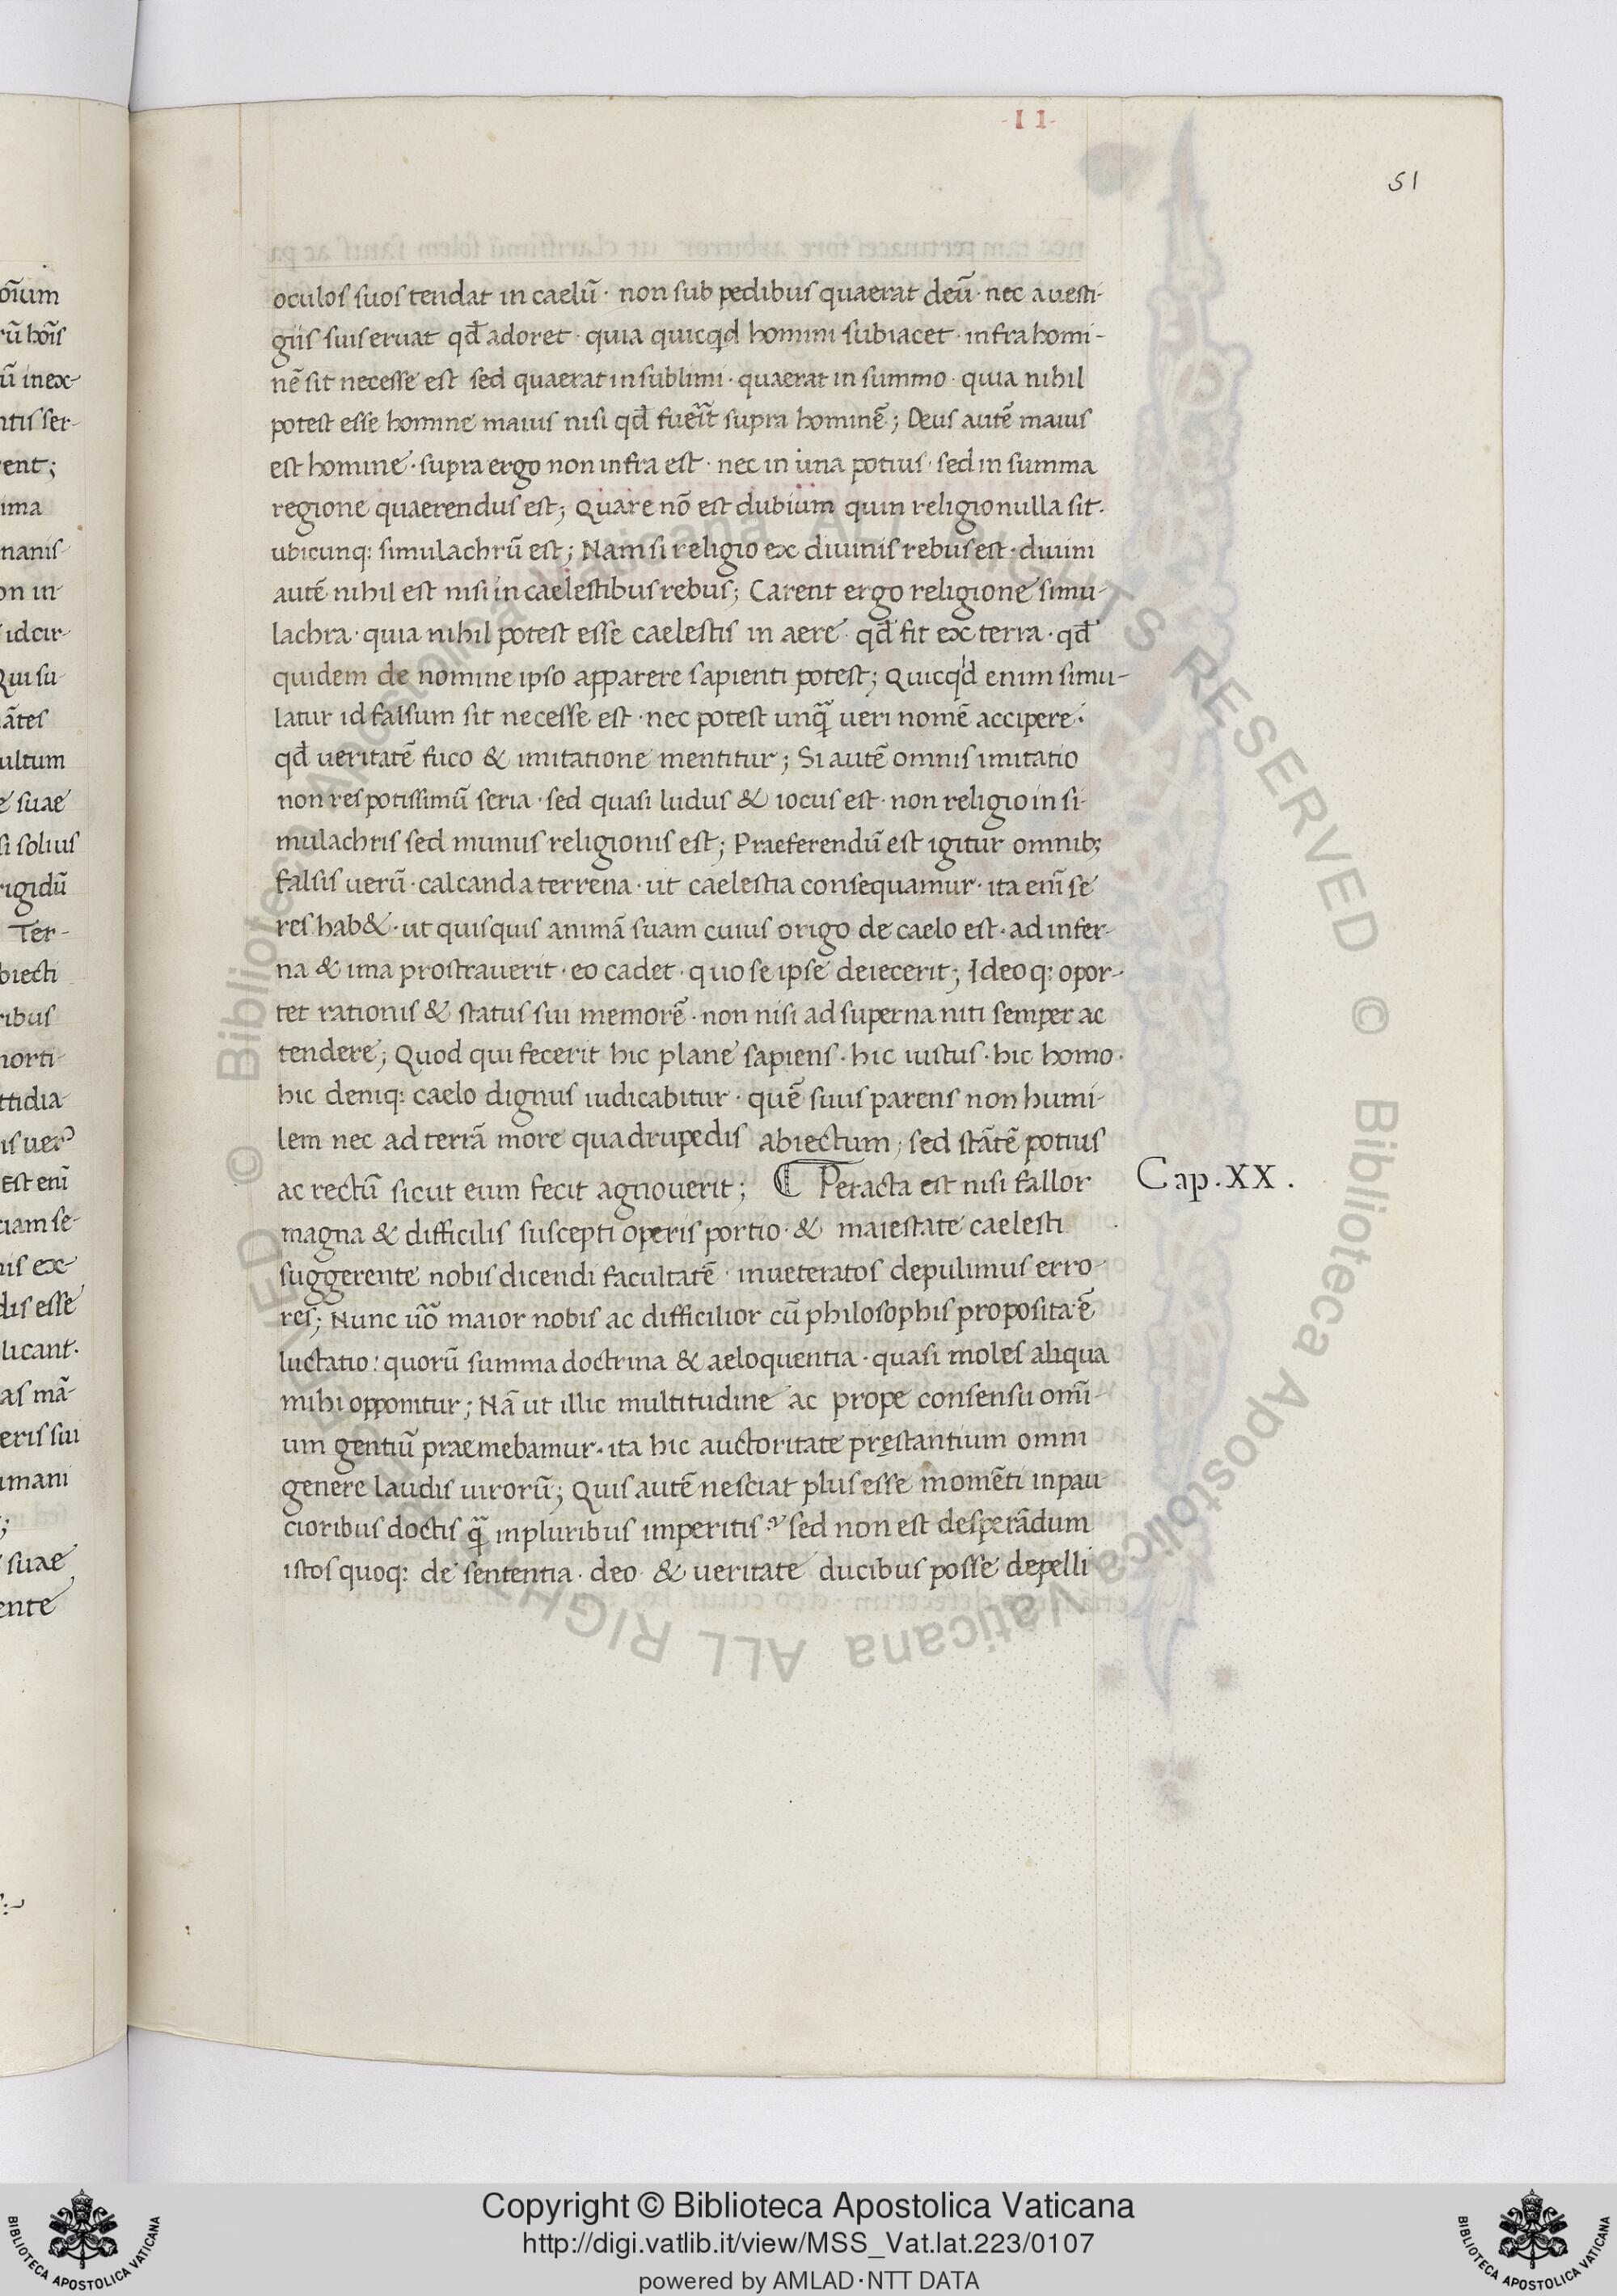 -II-
51
oculos suos tendat in caelū · non sub pedibus quaerat deū · nec a uesti-
giis suis eruat qđ adoret · quia quicqd homini subiacet · infra homi-
nē sit necesse est sed quaerat in sublimi · quaerat in summo · quia nihil
potest esse homine maius nisi qđ fuerit supra hominē; Deus autē maius
est homine · supra ergo non infra est · nec in una potius · sed in summa
regione quaerendus est; Quare nō est dubium quin religio nulla sit ·
ubicunq: simulachrū est; Nam si religio ex diuinis rebus est · diuini
autē nihil est nisi in caelestibus rebus; Carent ergo religione simu-
lachra · quia nihil potest esse caelestis in aere · qđ fit ex terra · qđ
quidem de nomine ipso apparere sapienti potest; Quicq'd enim simu-
latur id falsum sit necesse est · nec potest unq̄ ueri nomē accipere ·
qđ ueritatē fuco & imitatione mentitur; Si autē omnis imitatio
non res potissimū seria · sed quasi ludus & iocus est · non religio in si-
mulachris sed munus religionis est; Praeferendū est igitur omnib;
falsis uerū · calcanda terrena · ut caelestia consequamur · ita enī se
res hab& · ut quisquis animā suam cuius origo de caelo est · ad infer-
na & ima prostrauerit · eo cadet · quo se ipse deiecerit; Ideoq: opor-
tet rationis & status sui memorē · non nisi ad superna niti semper ac
tendere; Quod qui fecerit hic plane sapiens · hic iustus · hic homo ·
hic deniq: caelo dignus iudicabitur · quē suus parens non humi-
lem nec ad terrā more quadrupedis abiectum; sed stātē potius
ac rectū sicut eum fecit agnouerit; ₵ Peracta est nisi fallor
Cap. XX.
magna & difficilis suscepti operis portio · & maiestate caelesti
suggerente nobis dicendi facultatē · inueteratos depulimus erro-
res; Nunc uō maior nobis ac difficilior cū philosophis proposita ē
luctatio: quorū summa doctrina & aeloquentia · quasi moles aliqua
mihi opponitur; Nā ut illic multitudine ac prope consensu omī-
um gentiū praemebamur · ita hic auctoritate pręstantium omni
genere laudis uirorū; Quis autē nesciat plus esse momēti in pau
cioribus doctis q̄ in pluribus imperitis? sed non est desperādum
istos quoq: de sententia · deo · & ueritate ducibus posse depelli
Copyright © Biblioteca Apostolica Vaticana
http://digi.vatlib.it/view/MSS_Vat.lat.223/0107
powered by AMLAD·NTT DATA